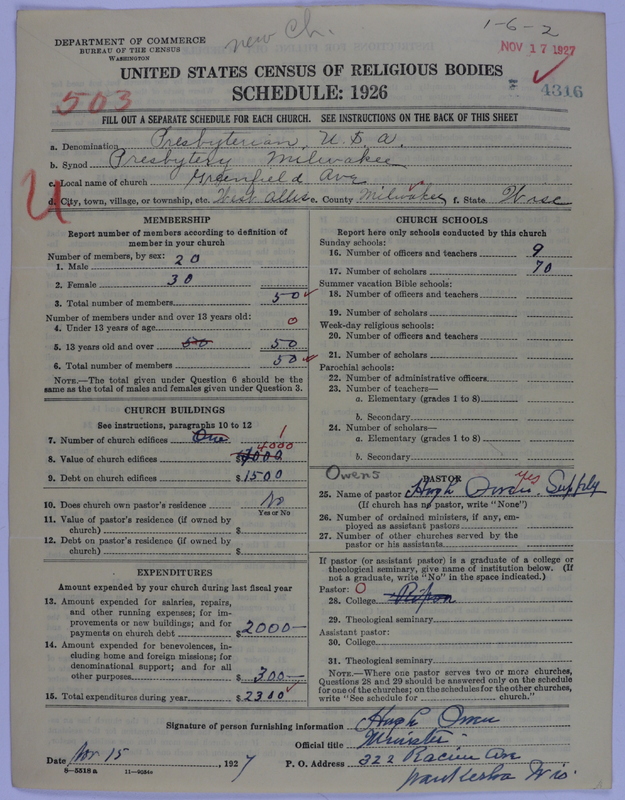 new Ch.
1-6-2
DEPARTMENT OF COMMERCE
BUREAU OF THE CENSUS
WASHINGTON
NOV 17 1927
UNITED STATES CENSUS OF RELIGIOUS BODIES
SCHEDULE: 1926
503
4316
FILL OUT A SEPARATE SCHEDULE FOR EACH CHURCH. SEE INSTRUCTIONS ON THE BACK OF THIS SHEET
a. Denomination Presbyterian, U.S.A.
b. Synod Presbytery Milwakee
c. Local name of church Greenfield Ave
d. City, town, village, or township, etc. West Allis e. County Milwakee f. State Wisc
U
MEMBERSHIP
Report number of members according to definition of
member in your church
Number of members, by sex:
1. Male 20
2. Female 30
3. Total number of members 50
Number of members under and over 13 years old:
4. Under 13 years of age 0
5. 13 years old and over 50 50
6. Total number of members 50
NOTE.—The total given under Question 6 should be the
same as the total of males and females given under Question 3.
CHURCH BUILDINGS
See instructions, paragraphs 10 to 12
7. Number of church edifices One 1
8. Value of church edifices $4000 4000
9. Debt on church edifices $1500
10. Does church own pastor's residence No
Yes or No
11. Value of pastor's residence (if owned by
church) $
12. Debt on pastor's residence (if owned by
church) $
EXPENDITURES
Amount expended by your church during last fiscal year
13. Amount expended for salaries, repairs,
and other running expenses; for im-
provements or new buildings; and for
payments on church debt $2000—
14. Amount expended for benevolences, in-
cluding home and foreign missions; for
denominational support; and for all
other purposes $300—
15. Total expenditures during year $2300
CHURCH SCHOOLS
Report here only schools conducted by this church
Sunday schools:
16. Number of officers and teachers 9
17. Number of scholars 70
Summer vacation Bible schools:
18. Number of officers and teachers
19. Number of scholars
Week-day religious schools:
20. Number of officers and teachers
21. Number of scholars
Parochial schools:
22. Number of administrative officers
23. Number of teachers—
a. Elementary (grades 1 to 8)
b. Secondary
24. Number of scholars—
a. Elementary (grades 1 to 8)
b. Secondary
Owens
PASTOR
yes
25. Name of pastor Hugh Owens. Supply
(If church has no pastor, write "None")
26. Number of ordained ministers, if any, em-
ployed as assistant pastors
27. Number of other churches served by the
pastor or his assistants
If pastor (or assistant pastor) is a graduate of a college or
theological seminary, give name of institution below. (If
not a graduate, write "No" in the space indicated.)
Pastor: O
28. College Ripon
29. Theological seminary
Assistant pastor:
30. College
31. Theological seminary
NOTE.—Where one pastor serves two or more churches,
Questions 28 and 29 should be answered only on the schedule
for one of the churches; on the schedules for the other churches,
write "See schedule for church."
Signature of person furnishing information Hugh Owen
Official title Minister
Date Nov 15, 1927
P. O. Address 322 Racine Ave
Waukesha Wis.
8—5518 a 11—9054a